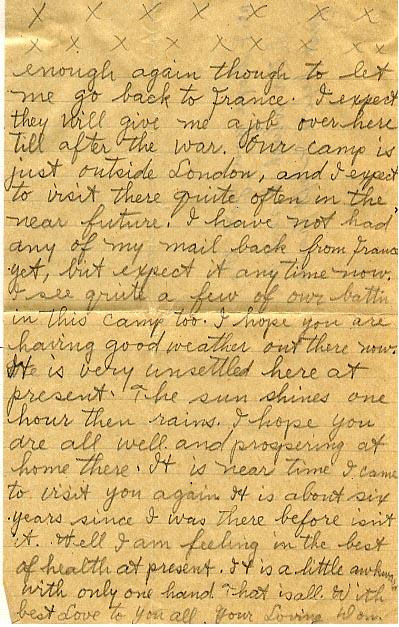 x x x x x x x
x x x x x x x x x
enough again though to let
me go back to France. I expect
they will give me a job over here
till after the war. Our camp is
just outside London, and I expect
to visit there quite often in the
near future. I have not had
any of my mail back from France
yet, but expect it any time now.
I see quite a few of our battn
in this camp too. I hope you are
having good weather out there now.
It is very unsettled here at
present. The sun shines one
hour then rains. I hope you
are all well and prospering at
home there. It is near time I came
to visit you again It is about six
years since I was there before isn't
it. Well I am feeling in the best
of health at present. It is a little
with only one hand. That is all. With
best Love to you all. Your Loving